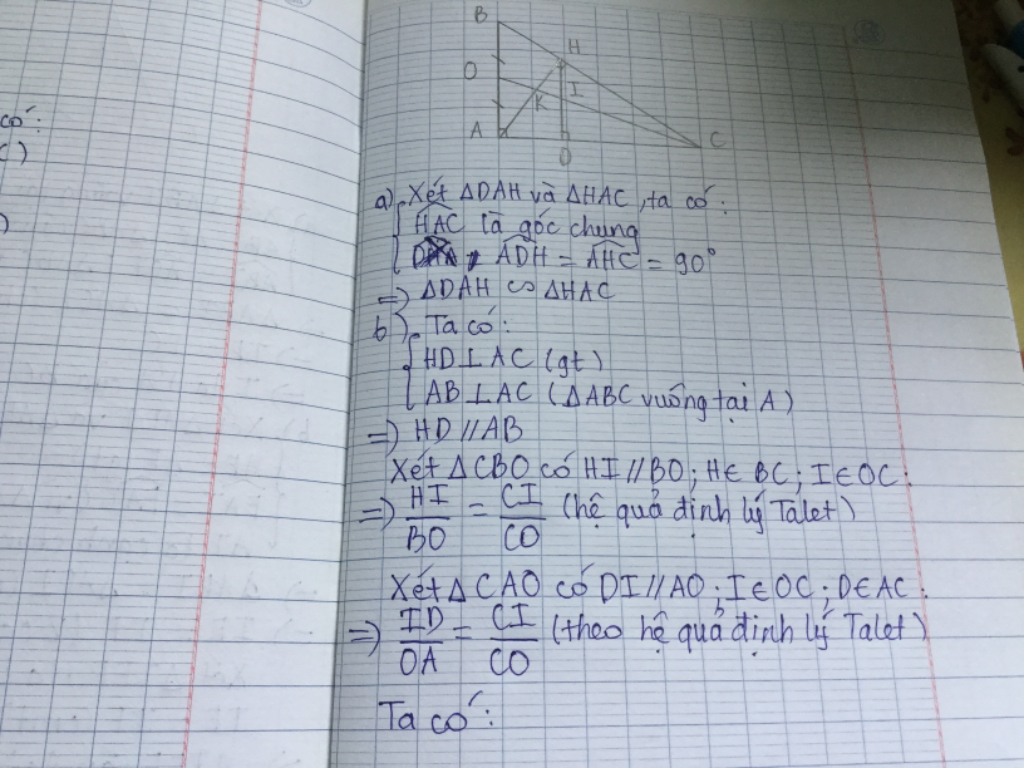 có:
C)
)
B
H
O
I
K
A
C
D
a) Xét ΔDAH và ΔHAC, ta có:
HAC là góc chung
ADH = AHC = 90°
=) ΔDAH ∽ ΔHAC
b) Ta có:
HD⊥AC (gt)
AB⊥AC (ΔABC vuông tại A)
=) HD//AB
Xét ΔCBO có HI//BO; H∈ BC; I∈OC:
=) HI/BO = CI/CO (hệ quả định lý Talet)
Xét ΔCAO có DI//AO; I∈OC; D∈AC:
=) ID/OA = CI/CO (theo hệ quả định lý Talet)
Ta có: